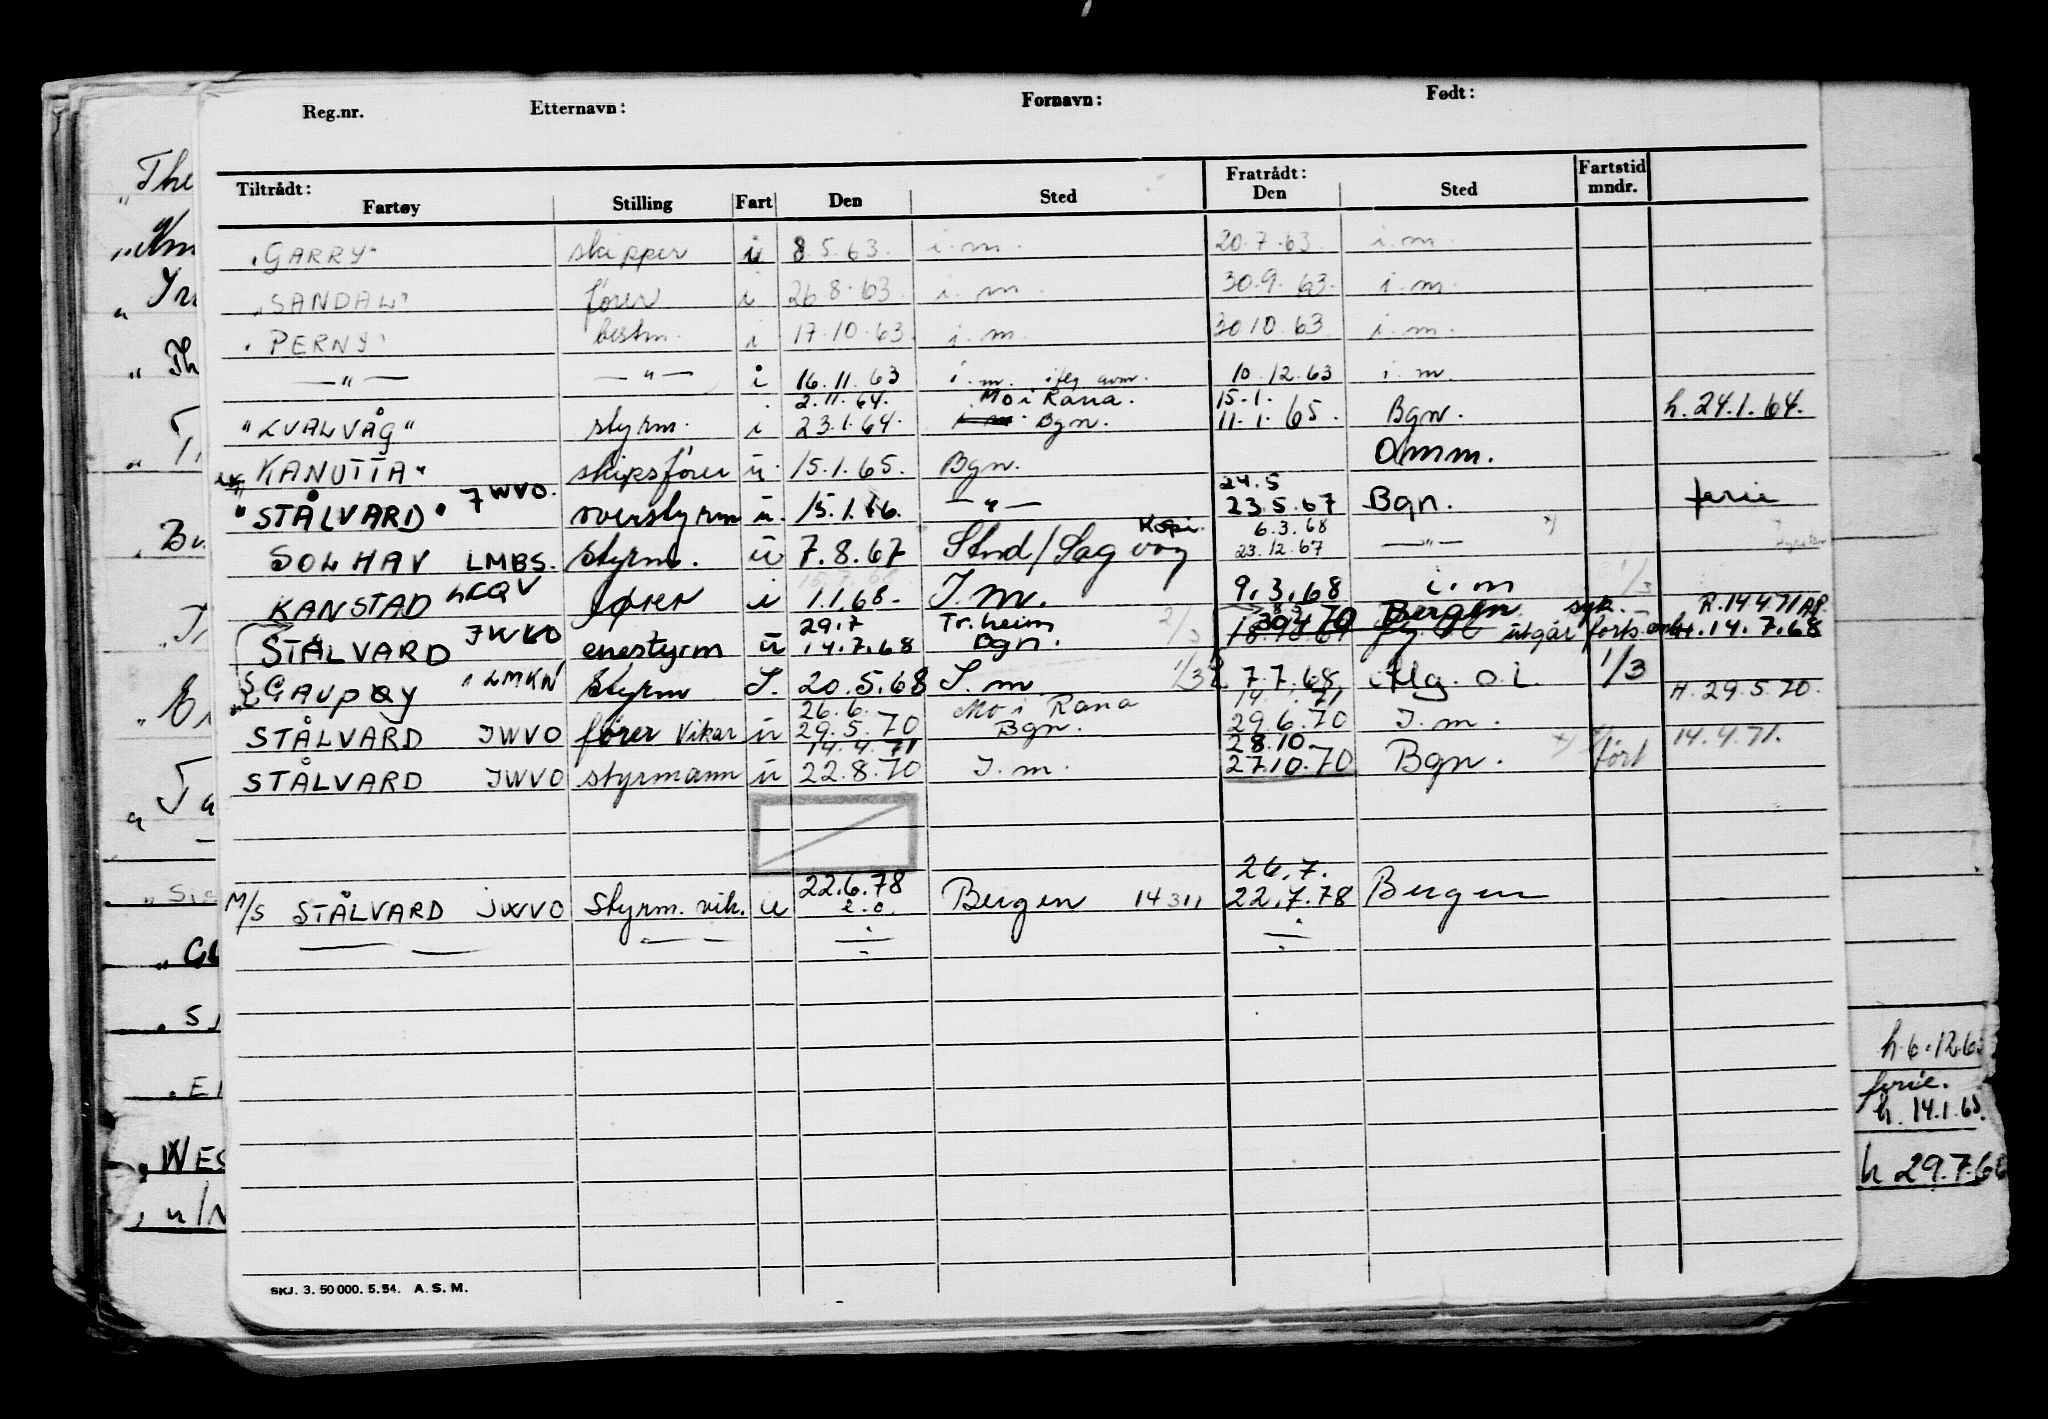 Reg.nr. Etternavn: Fornavn: Født:
Tiltrådt: Fratrådt: Fartstid
Fartøy Stilling Fart Den Sted Den Sted mndr.
"GARRY" skipper u 8.5.63. i.m. 20.7.63. i.m.
"SANDAL" fører i 26.8.63. i.m. 30.9.63. i.m.
"PERNY" bestm. i 17.10.63. i.m. 30.10.63. i.m.
— " — — " — i 16.11.63 i.m. iflg avm. 10.12.63 i.m.
2.11.64. Mo i Rana. 15.1.
"KVALVÅG" styrm. i 23.1.64. Bgn. 11.1.65. Bgn. h. 24.1.64.
"KANUTTA" skipsfører u. 15.1.65. Bgn. Omm.
24.5
"STÅLVARD" JWVO. overstyrm u. 15.1.66. — " — 23.5.67 Bgn. ferie
Kopi 6.3.68
SOLHAV LMBS. styrm. u 7.8.67 Stnd/Sagvåg 23.12.67 — " —
KANSTAD LCQV fører i 1.1.68- I.m. 9.3.68 i.m 1/3
29.7 Tr.heim 30.4.70 Bergen syk. A. 14.4.71 AP.
STÅLVARD JWVO enestyrm u 14.7.68 Bgn. 2/3 utgår forts. 14.7.68
GAUPØY LMKN styrm I. 20.5.68 I.m. 1/3 7.7.68 iflg. o.l. 1/3
26.6. Mo i Rana H. 29.5.70.
STÅLVARD JWVO fører Vikar u 29.5.70 Bgn. 29.6.70 I.m.
14.4.71 28.10- 14.4.71.
STÅLVARD JWVO styrmann u 22.8.70 I.m. 27.10.70 Bgn. fort
22.6.78 26.7.
M/S STÅLVARD JWVO Styrm. vik. u e.o. Bergen 14311 22.7.78 Bergen
SKJ. 3. 50 000. 5. 54. A. S. M.
"The
"Th
h. 6.12.6
ferie.
h. 14.1.65.
h 29.7.66
"WES